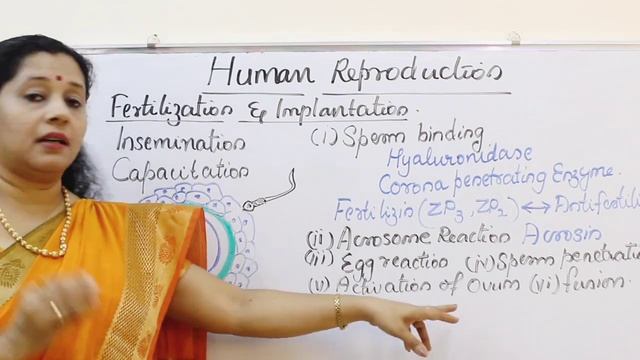 Human Reproduction
Fertilization & Implantation.
Insemination
Capacitation
(i) Sperm binding
Hyaluronidase
Corona penetrating Enzyme.
Fertilizin (ZP3, ZP2) ↔ Antifertili
(ii) Acrosome Reaction Acrosin
(iii) Egg reaction (iv) Sperm penetratio
(v) Activation of Ovum (vi) fusion.